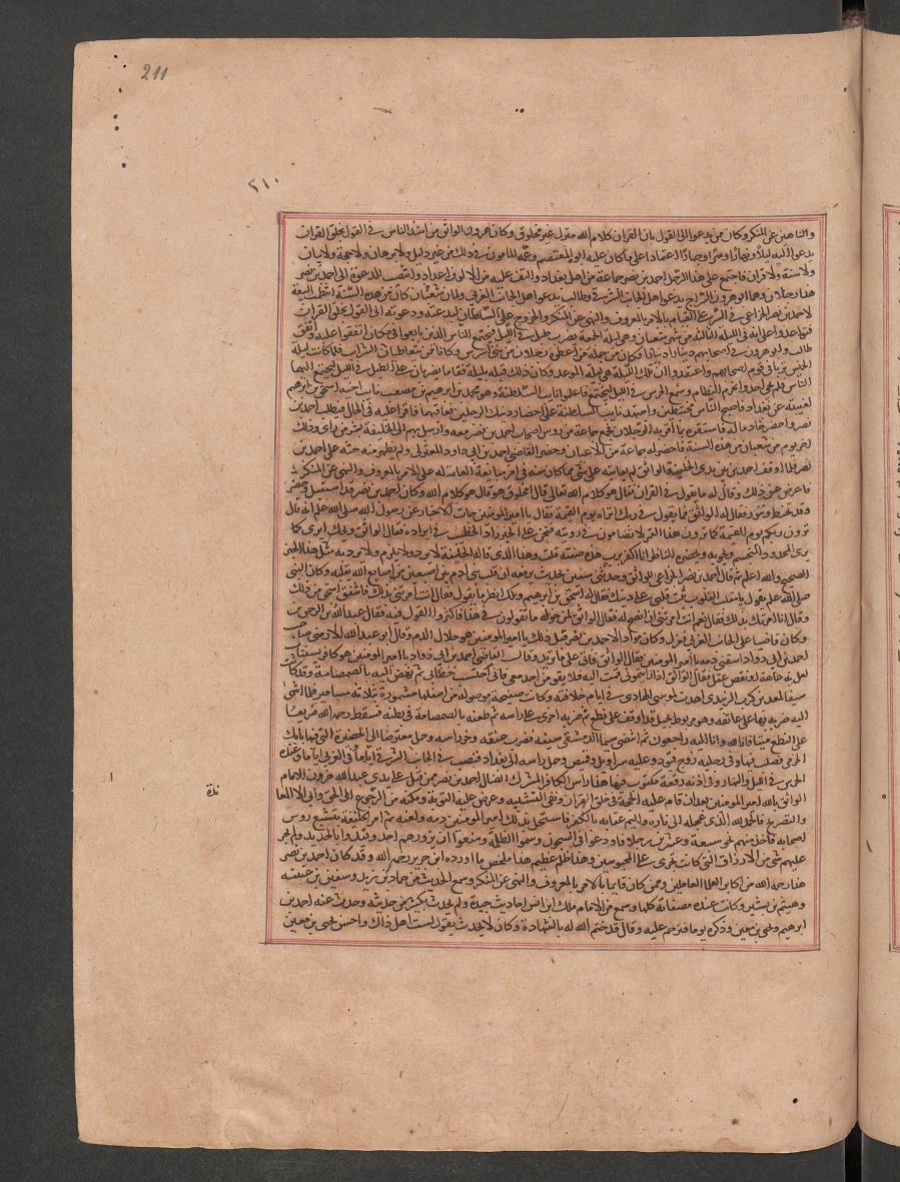 211
٢١٠
والناهين عن المنكر وكان ممن يدعوا الى القول بان القران كلام الله منزل غير مخلوق وكان هرون الواثق من اشد الناس في القول بخلق القران
يدعوا اليه ليلا ونهارا وسرا وجهارا اعتمادا على ما كان عليه ابوه المعتصم وعمه المامون في ذلك من غير دليل ولا برهان ولا حجة ولا بيان
ولا سنة ولا قران فاجتمع على هذا الرجل احمد بن نصر جماعة من اهل بغداد والتف عليه من الالوف اعداد وانتصب للدعوة الى احمد بن نصر
هذا رجلان وهما ابو هرون السراج يدعوا اهل الجانب الشرقي وطالب يدعوا اهل الجانب الغربي ولما كان شعبان من هذه السنة انتظمت البيعة
لاحمد بن نصر الخزاعي في السر على القيام بالامر بالمعروف والنهي عن المنكر والخروج على السلطان لبدعته ودعوته الى القول بخلق القران
فتواعدوا على انه في الليلة الثالثة من شهر شعبان وهي ليلة الجمعة يضرب طبل في الليل فيجتمع الناس الذين بايعوا في مكان اتفقوا عليه وانفق
طالب وابو هرون في اصحابهم دينارا دينارا فكان من جملة من اعطى رجلان من بني اشرس وكانا ممن يتعاطيان الشراب فلما كانت ليلة
الخميس شربا في قوم اصحابهم واعتقدوا ان تلك الليلة هي ليلة الموعد وكان ذلك قبله بليلة فقاما يضربان على الطبل في الليل ليجتمع اليهما
الناس فلم يجئ احد وانخرم النظام وسمع الحرس في الليل فاعلموا نايب السلطنة وهو محمد بن ابرهيم بن مصعب نايب اخيه اسحق بن ابرهيم
لغيبته عن بغداد فاصبح الناس مخبطين واجتهد نايب السلطنة على احضار ذينك الرجلين فعاقبهما فاقرا عليه في الحال فتطلب احمد بن
نصر واحضر خادما له فاستقره بما اقر به الرجلان فجمع جماعة من روس اصحاب احمد بن نصر معه وارسل بهم الى الخليفة بسر من راى وذلك
اخر يوم من شعبان من هذه السنة فاحضر له جماعة من الاعيان وحضر القاضي احمد بن ابي دواد المعتزلي ولم يظهر منه حثه على احمد بن
نصر فلما اوقف احمد بين يدي الخليفة الواثق لم يعاتبه على شي مما كان منه في امر مبايعة العامة له على الامر بالمعروف والنهي عن المنكر بل
فاعرض عن ذلك وقال له ما يقول في القران فقال هو كلام الله تعالى قال امخلوق هو قال هو كلام الله وكان احمد بن نصر قد استقبل
وقد تحنط وتنور فقال له الواثق فما يقول في ربك اتراه يوم القيمة فقال يا امير المومنين جات الاخبار عن رسول الله صلى الله عليه انه قال
ترون ربكم يوم القيمة كما ترون هذا القمر لا تضامون في رويته فنحن على الخبر زاد الخطيب في ايراده فقال الواثق ويحك ايرى كما
يرى المحدود المتجسم ويحويه ويحصره الناظر انا اكفر برب هذه صفته قلت وهذا الذي قاله الخليفة لا يجوز ولا يلزم ولا يرد به مثل هذا الخبر
الصحيح والله اعلم ثم قال احمد بن نصر الخزاعي للواثق وحدثني سفين بحديث يرفعه ان قلب بني ادم بين اصبعين من اصابع الله يقلبه وكان النبي
صلى الله علم يقول يا مقلب القلوب ثبت قلبي على دينك فقال له اسحق بن ابرهيم ويلك انظر ما يقول فقال انت امرتني بذلك فاشفق اسحق من ذلك
وقال انا امرتك بذلك فقال نعم انت امرتني ان انصح له فقال الواثق لمن حوله ما تقولون في هذا فاكثروا القول فيه فقال عبد الرحمن بن
وكان قاضيا على الجانب الغربي فعزل وكان مواد الاحمد بن نصر قبل ذلك يا امير المومنين هو حلال الدم وقال ابو عبد الله الارمني صاحب
احمد بن ابي دواد اسقني دمه يا امير المومنين فقال الواثق ياتي على ما تريد وقال القاضي احمد بن ابي دواد يا امير المومنين هو كافر يستتاب
لعل به عاهة او نقص عقل فقال الواثق اذا رايتموني قمت اليه فلا يقومن احد معي فاني احتسب خطاي ثم نهض اليه بالصمصامة وقد كانت
سيفا لعمرو بن معد كرب الزبيدي اهديت لموسى الهادي في ايام خلافته وكانت صفيحة موصولة من اسفلها مسمورة بثلاثة مسامير فلما انتهى
اليه ضربه بها على عاتقه وهو مربوط بحبل قد اوقف على نطع ثم ضربه اخرى على راسه ثم طعنه بالصمصامة في بطنه فسقط رحمه الله صريعا
على النطع ميتا فانا لله وانا اليه راجعون ثم انتضى سيما الدمشقي سيفه فضرب عنقه وحز راسه وحمل معترضا الى الحضيرة التي فيها بابك
الخرمي فصلب فيها وفي رجليه زوج قيود وعليه سراويل وقميص وحمل راسه الى بغداد فنصب في الجانب الشرقي اياما وفي الغربي اياما وعنده
الحرس في الليل والنهار وفي اذنه رقعة مكتوب فيها هذا راس الكافر المشرك الضال احمد بن نصر ممن قتل على يدي عبد الله هرون الامام
الواثق بالله امير المومنين بعد ان قام عليه الحجة في خلق القران ونفي التشبيه وعرض عليه التوبة ومكنه من الرجوع الى الحق فابى الا المعا
ندة
والتصريح فالحمد لله الذي عجله الى ناره واليم عقابه بالكفر فاستحل بذلك امير المومنين دمه ولعنه ثم امر الخليفة بتتبع روس
اصحابه فاخذ منهم نحو تسعة وعشرين رجلا فاودعوا في السجون وسموا الظلمة ومنعوا ان يزورهم احد وقيدوا بالحديد ولم يجر
عليهم شي من الارزاق التي كانت تجري على المحبوسين وهذا ظلم عظيم هذا ملخص ما اورده ابن جرير رحمه الله وقد كان احمد بن نصر
هذا رحمه الله من اكابر العلما العاملين وممن كان قايما بالامر بالمعروف والنهي عن المنكر وسمع الحديث من حماد بن زيد وسفين بن عيينه
وهشيم بن بشير وكانت عنده مصنفاته كلها وسمع من الامام ملك ابن انس احاديث جيدة ولم يحدث بكثير من حديثه وحدث عنه احمد بن
ابرهيم ويحيى بن معين وذكره يوما فترحم عليه وقال قد ختم الله له بالشهادة وكان لا يحدث يقول لست اهل ذاك واحسن يحيى بن معين